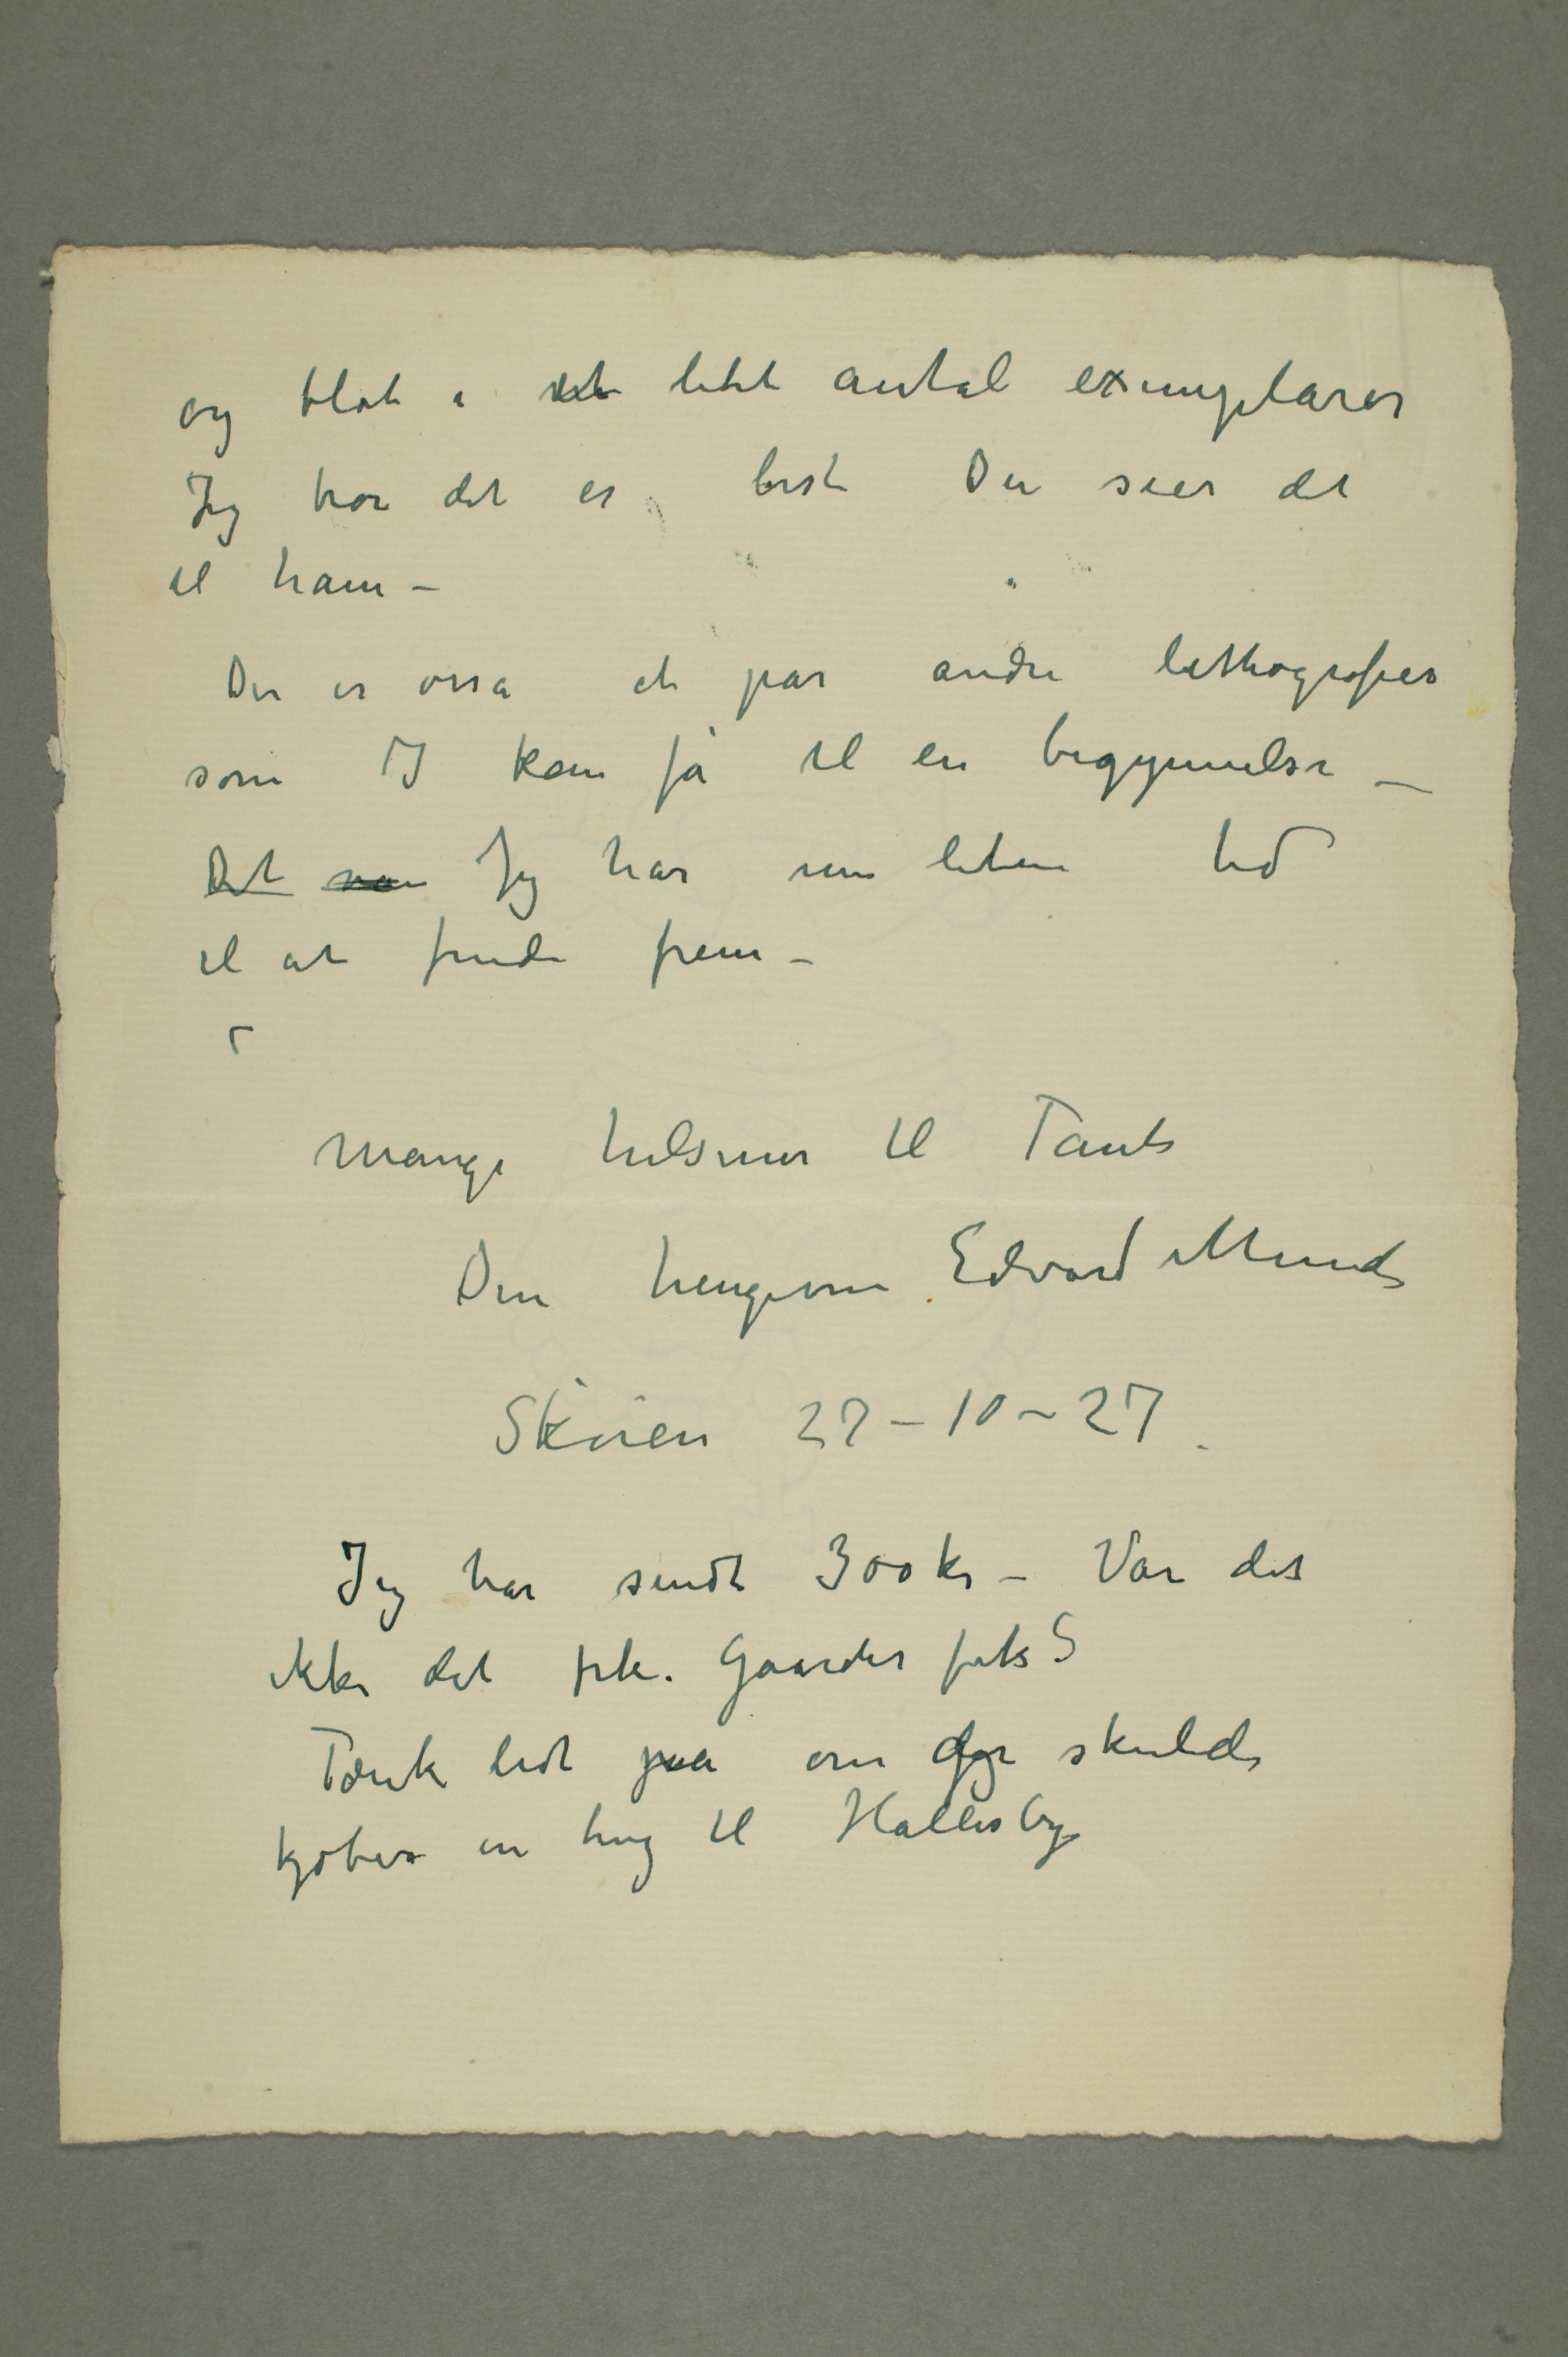 og blot i et litet antal exemplarer
Jeg tror det er best Du sier det
til ham –
Der er osså et par andre lithografier
som I kan få til en begynnelse –
Det var Jeg har nu liten tid
til at finde frem –
Mange hilsener til Tante
Din hengivne Edvard Munch
Skøien 27 – 10 – 27.
Jeg har sendt 300 kr – Var det
ikke det frk. Gaarder fik?
Tænk lidt paa om jeg skulde
kjøbe en ting til Hallesby